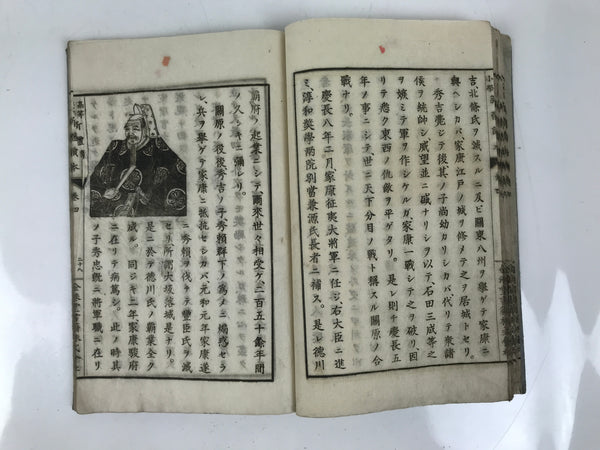 吉北條氏ヲ滅スルニ及ビ關東八州ヲ擧ゲテ家康ニ
與ヘシカバ家康江戸ノ城ヲ修メテ之ヲ居城トセリ
秀吉薨ジテ後其ノ子尚幼カリシカバ代リテ衆諸
侯ヲ統帥シ威望並ニ碱ナリシヲ以テ石田三成等之
ヲ嫉ミテ軍ヲ作シケルガ家康一戰シテ之ヲ破リ因
リテ悉ク東西ノ仇敵ヲ平ゲタリ。是レ則チ慶長五
年ノ事ニシテ、世ニ天下分目ノ戰ト稱スル關原ノ合
戰ナリ。
慶長八年二月家康征夷大將軍ニ任ジ右大臣ニ進
ミ、淳和奬學兩院別當兼源氏長者ニ補ス。是レ德川
幕府ノ起業ニシテ、爾來世々相受ケ、二百五十餘年間
ノ久シキニ彌レリ。
關原ノ役後秀吉ノ子、秀頼群下ノ爲メニ煽惑セラ
レ、兵ヲ擧ゲテ家康ニ抵抗セシカバ元和元年家康遂
ニ秀頼ヲ伐チテ豐臣氏ヲ滅
セリ所謂大坂落城是ナリ。
是ニ於テ德川氏ノ覇業全ク
成ル。同ジキ二年家康駿府
ニ在リテ病薨シ。此ノ時其
ノ子秀忠既ニ將軍職ニ在リ
卷四
二十八